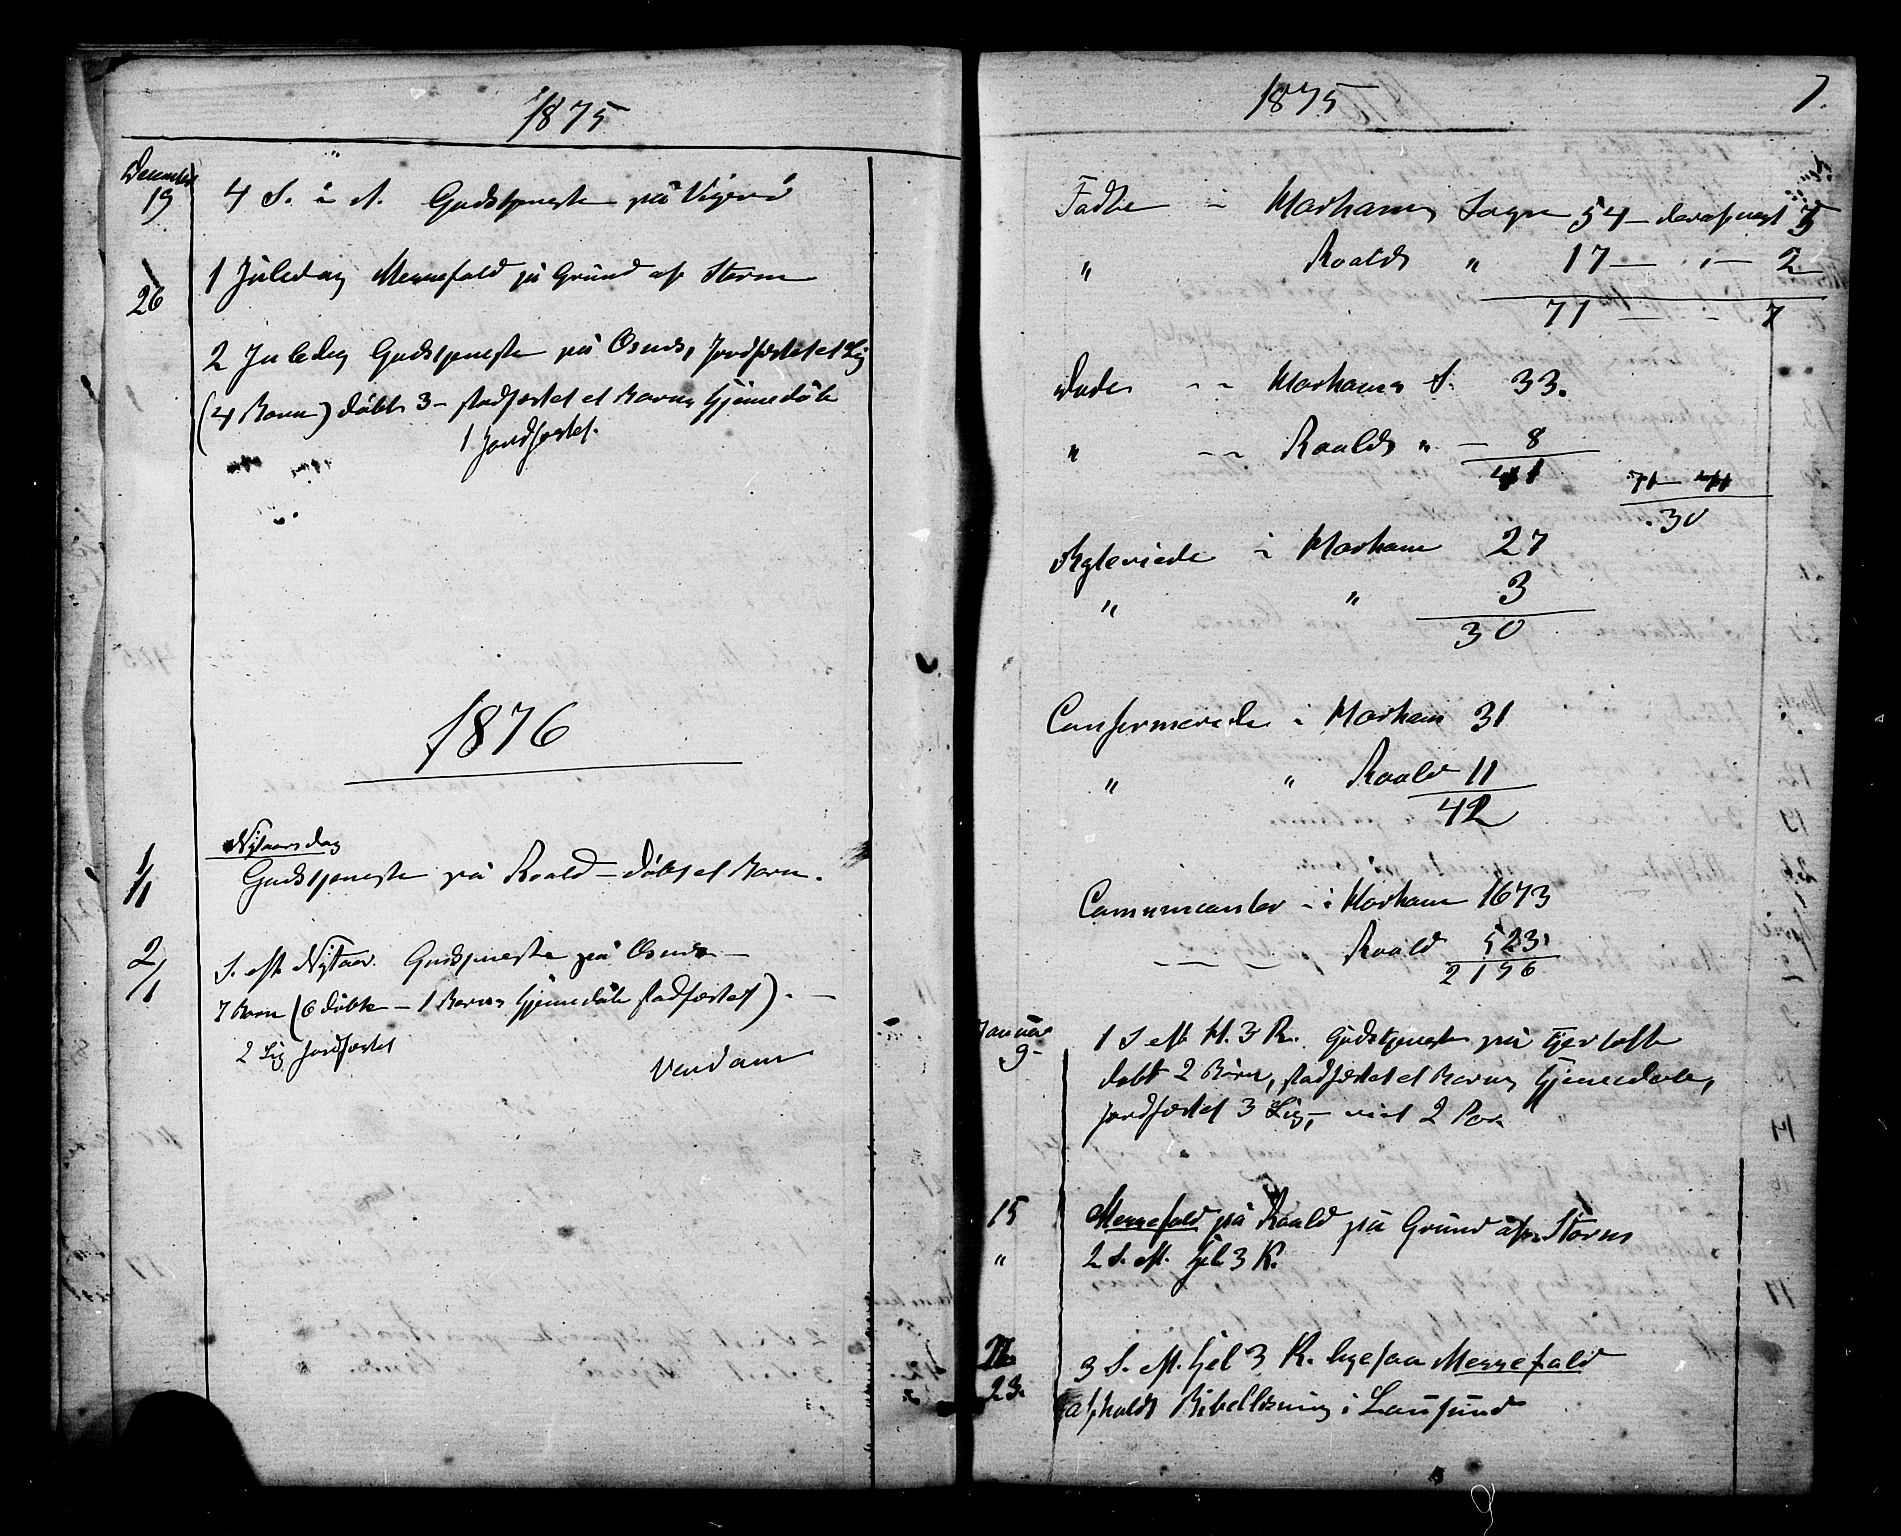 1875
December
19
4 S. i A. Gudstjeneste på Vigerø
26
1 Juledag Messefald på Grund af Storm
2 Juledag Gudstjeneste på Osnes, Jordfæstet et Lig
(4 Børn) døbt 3 – stadfæstet et Barns Hjemmedåb
1 Jordfæstet.
1876
Nytaarsdag
1/1
Gudstjeneste på Roald – døbt et Barn.
2/1
S. eft. Nytaar. Gudstjeneste på Osnes –
7 Børn (6 døbte – 1 Barns Hjemmedåb stadfæstet). –
2 Lig jordfæstet
1875
7.
Fødte i Harhams Sogn 54 – deraf uægt 5
" Roalds " 17 – " – 2
71 – – 7
Døde – – Harhams S. 33.
" – – Roalds " – 8
41
71 – 41
30
Ægteviede i Harham 27
" " 3
30
Confirmerede i Harham 31
" " Roald 11
42
Communicanter – i Harham 1673
– – – Roald 523
2196
Januar
9 –
1 S. eft. H. 3 K. Gudstjeneste på Fjertoft
døbt 2 Børn, stadfæstet et Barns Hjemmedåb,
jordfæstet 3 Lig, – viet 2 Par
15
Messefald på Roald på Grund af Storm
"
2 S. eft. Hel 3 K.
22
3 S. eft. Hel 3 K. ligesaa Messefald
23.
afholdt Bibellæsning i Lausund